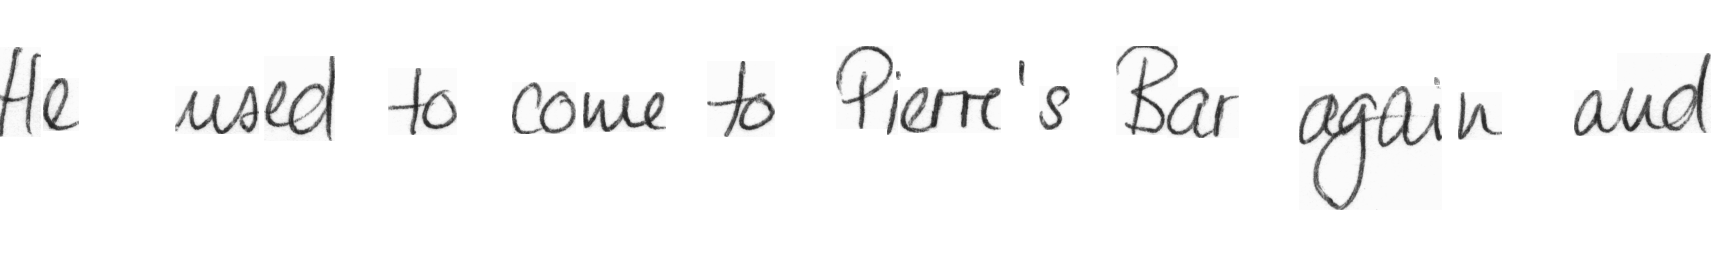 He used to come to Pierre's Bar again and